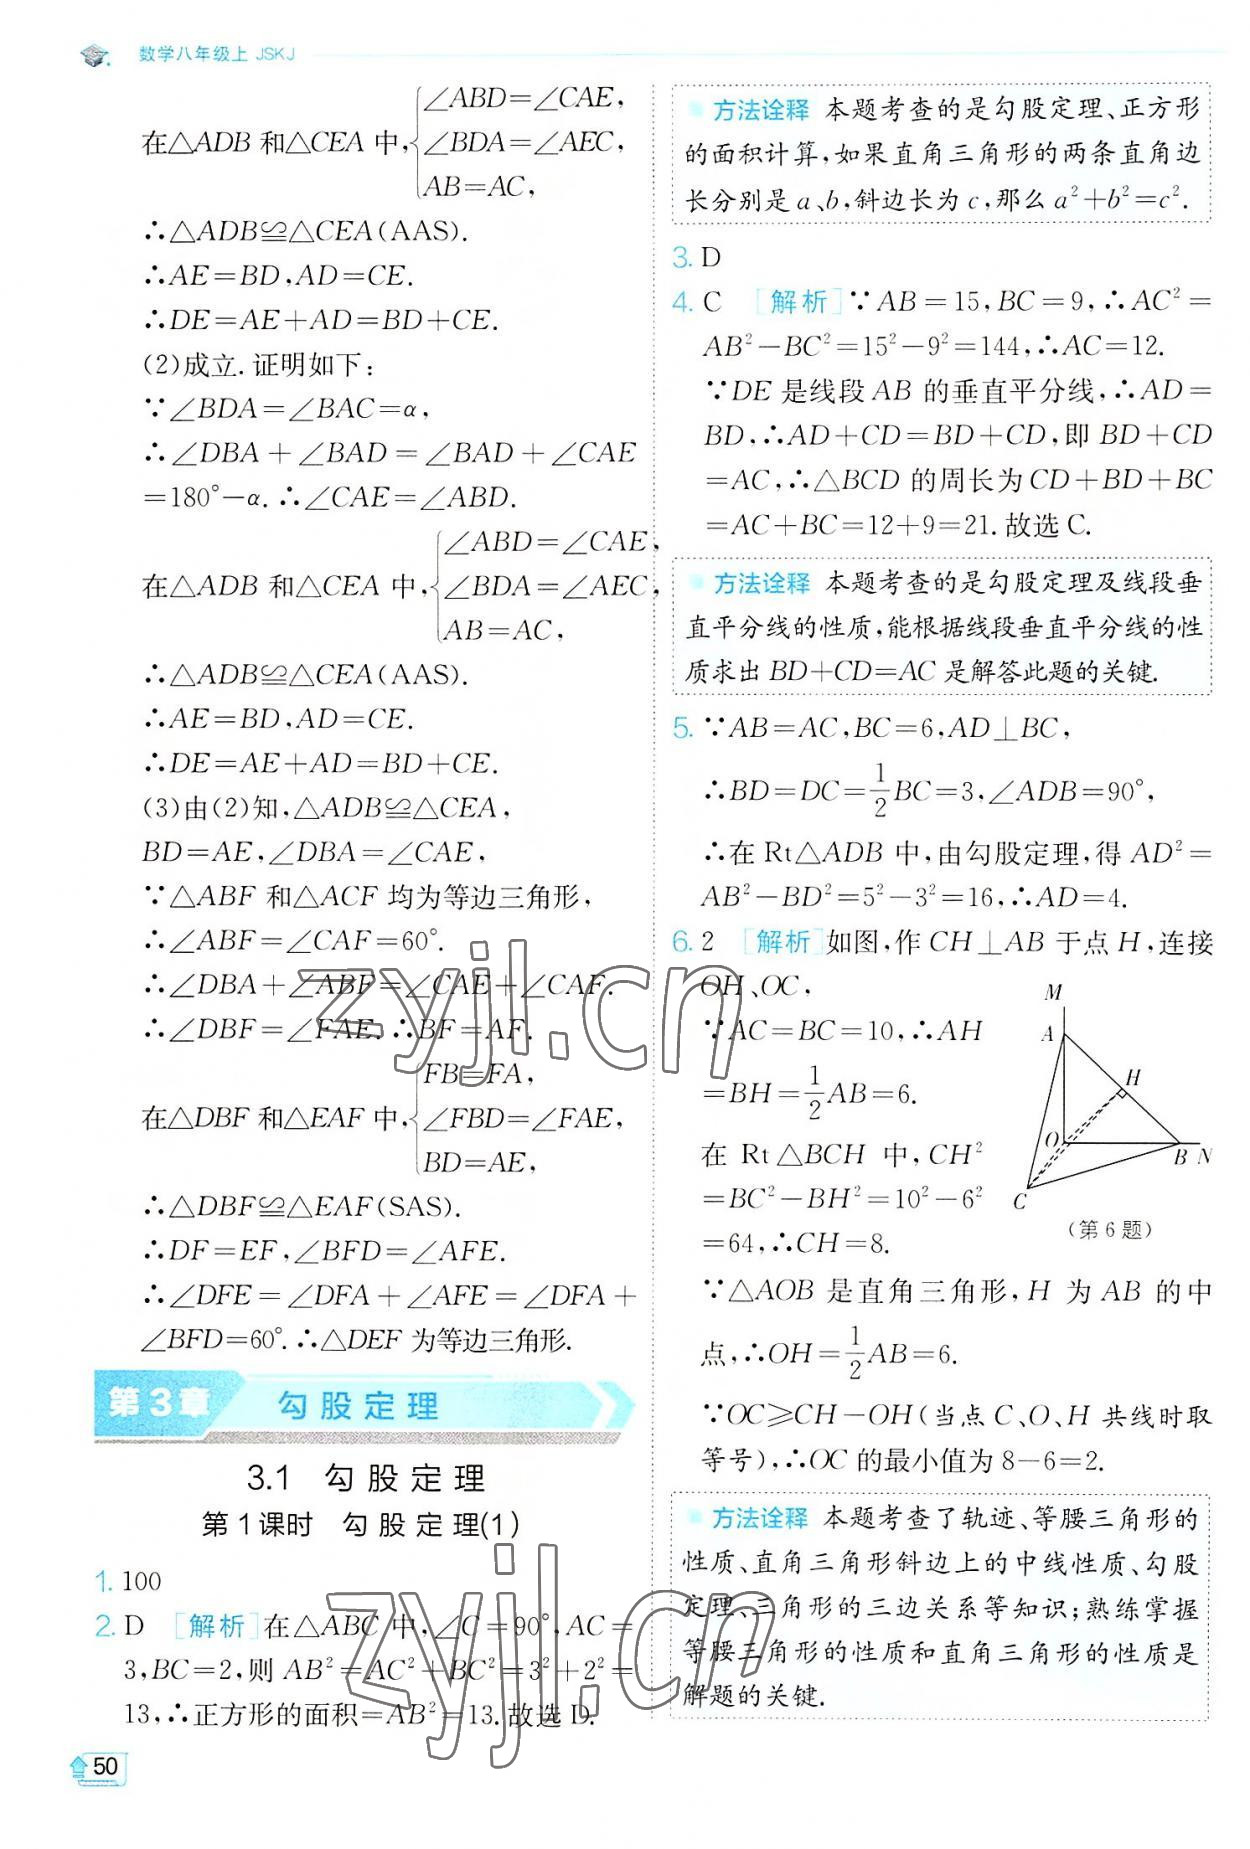 数学八年级上 JSKJ
在△ADB 和△CEA 中,{∠ABD=∠CAE,
∠BDA=∠AEC,
AB=AC,
∴△ADB≌△CEA(AAS).
∴AE=BD,AD=CE.
∴DE=AE+AD=BD+CE.
(2)成立.证明如下:
∵∠BDA=∠BAC=α,
∴∠DBA+∠BAD=∠BAD+∠CAE
=180°-α.∴∠CAE=∠ABD.
在△ADB 和△CEA 中,{∠ABD=∠CAE,
∠BDA=∠AEC,
AB=AC,
∴△ADB≌△CEA(AAS).
∴AE=BD,AD=CE.
∴DE=AE+AD=BD+CE.
(3)由(2)知,△ADB≌△CEA,
BD=AE,∠DBA=∠CAE,
∵△ABF 和△ACF 均为等边三角形,
∴∠ABF=∠CAF=60°.
∴∠DBA+∠ABF=∠CAE+∠CAF.
∴∠DBF=∠FAE.∴BF=AF.
在△DBF 和△EAF 中,{FB=FA,
∠FBD=∠FAE,
BD=AE,
∴△DBF≌△EAF(SAS).
∴DF=EF,∠BFD=∠AFE.
∴∠DFE=∠DFA+∠AFE=∠DFA+
∠BFD=60°.∴△DEF 为等边三角形.
第3章 勾股定理
3.1 勾股定理
第1课时 勾股定理(1)
1. 100
2. D [解析]在△ABC 中,∠C=90°,AC=
3,BC=2,则 AB²=AC²+BC²=3²+2²=
13,∴正方形的面积=AB²=13.故选D.
50
方法诠释 本题考查的是勾股定理、正方形
的面积计算,如果直角三角形的两条直角边
长分别是 a、b,斜边长为 c,那么 a²+b²=c².
3. D
4. C [解析]∵AB=15,BC=9,∴AC²=
AB²-BC²=15²-9²=144,∴AC=12.
∵DE 是线段 AB 的垂直平分线,∴AD=
BD,∴AD+CD=BD+CD,即 BD+CD
=AC,∴△BCD 的周长为 CD+BD+BC
=AC+BC=12+9=21.故选C.
方法诠释 本题考查的是勾股定理及线段垂
直平分线的性质,能根据线段垂直平分线的性
质求出 BD+CD=AC 是解答此题的关键.
5. ∵AB=AC,BC=6,AD⊥BC,
∴BD=DC=1/2BC=3,∠ADB=90°,
∴在 Rt△ADB 中,由勾股定理,得 AD²=
AB²-BD²=5²-3²=16,∴AD=4.
6. 2 [解析]如图,作 CH⊥AB 于点 H,连接
OH、OC,
∵AC=BC=10,∴AH
=BH=1/2AB=6.
在 Rt△BCH 中,CH²
=BC²-BH²=10²-6²
=64,∴CH=8.
M
A
H
O
B N
C
(第6题)
∵△AOB 是直角三角形,H 为 AB 的中
点,∴OH=1/2AB=6.
∵OC≥CH-OH(当点 C、O、H 共线时取
等号),∴OC 的最小值为 8-6=2.
方法诠释 本题考查了轨迹、等腰三角形的
性质、直角三角形斜边上的中线性质、勾股
定理、三角形的三边关系等知识;熟练掌握
等腰三角形的性质和直角三角形的性质是
解题的关键.
zyjl.cn
zyjl.cn